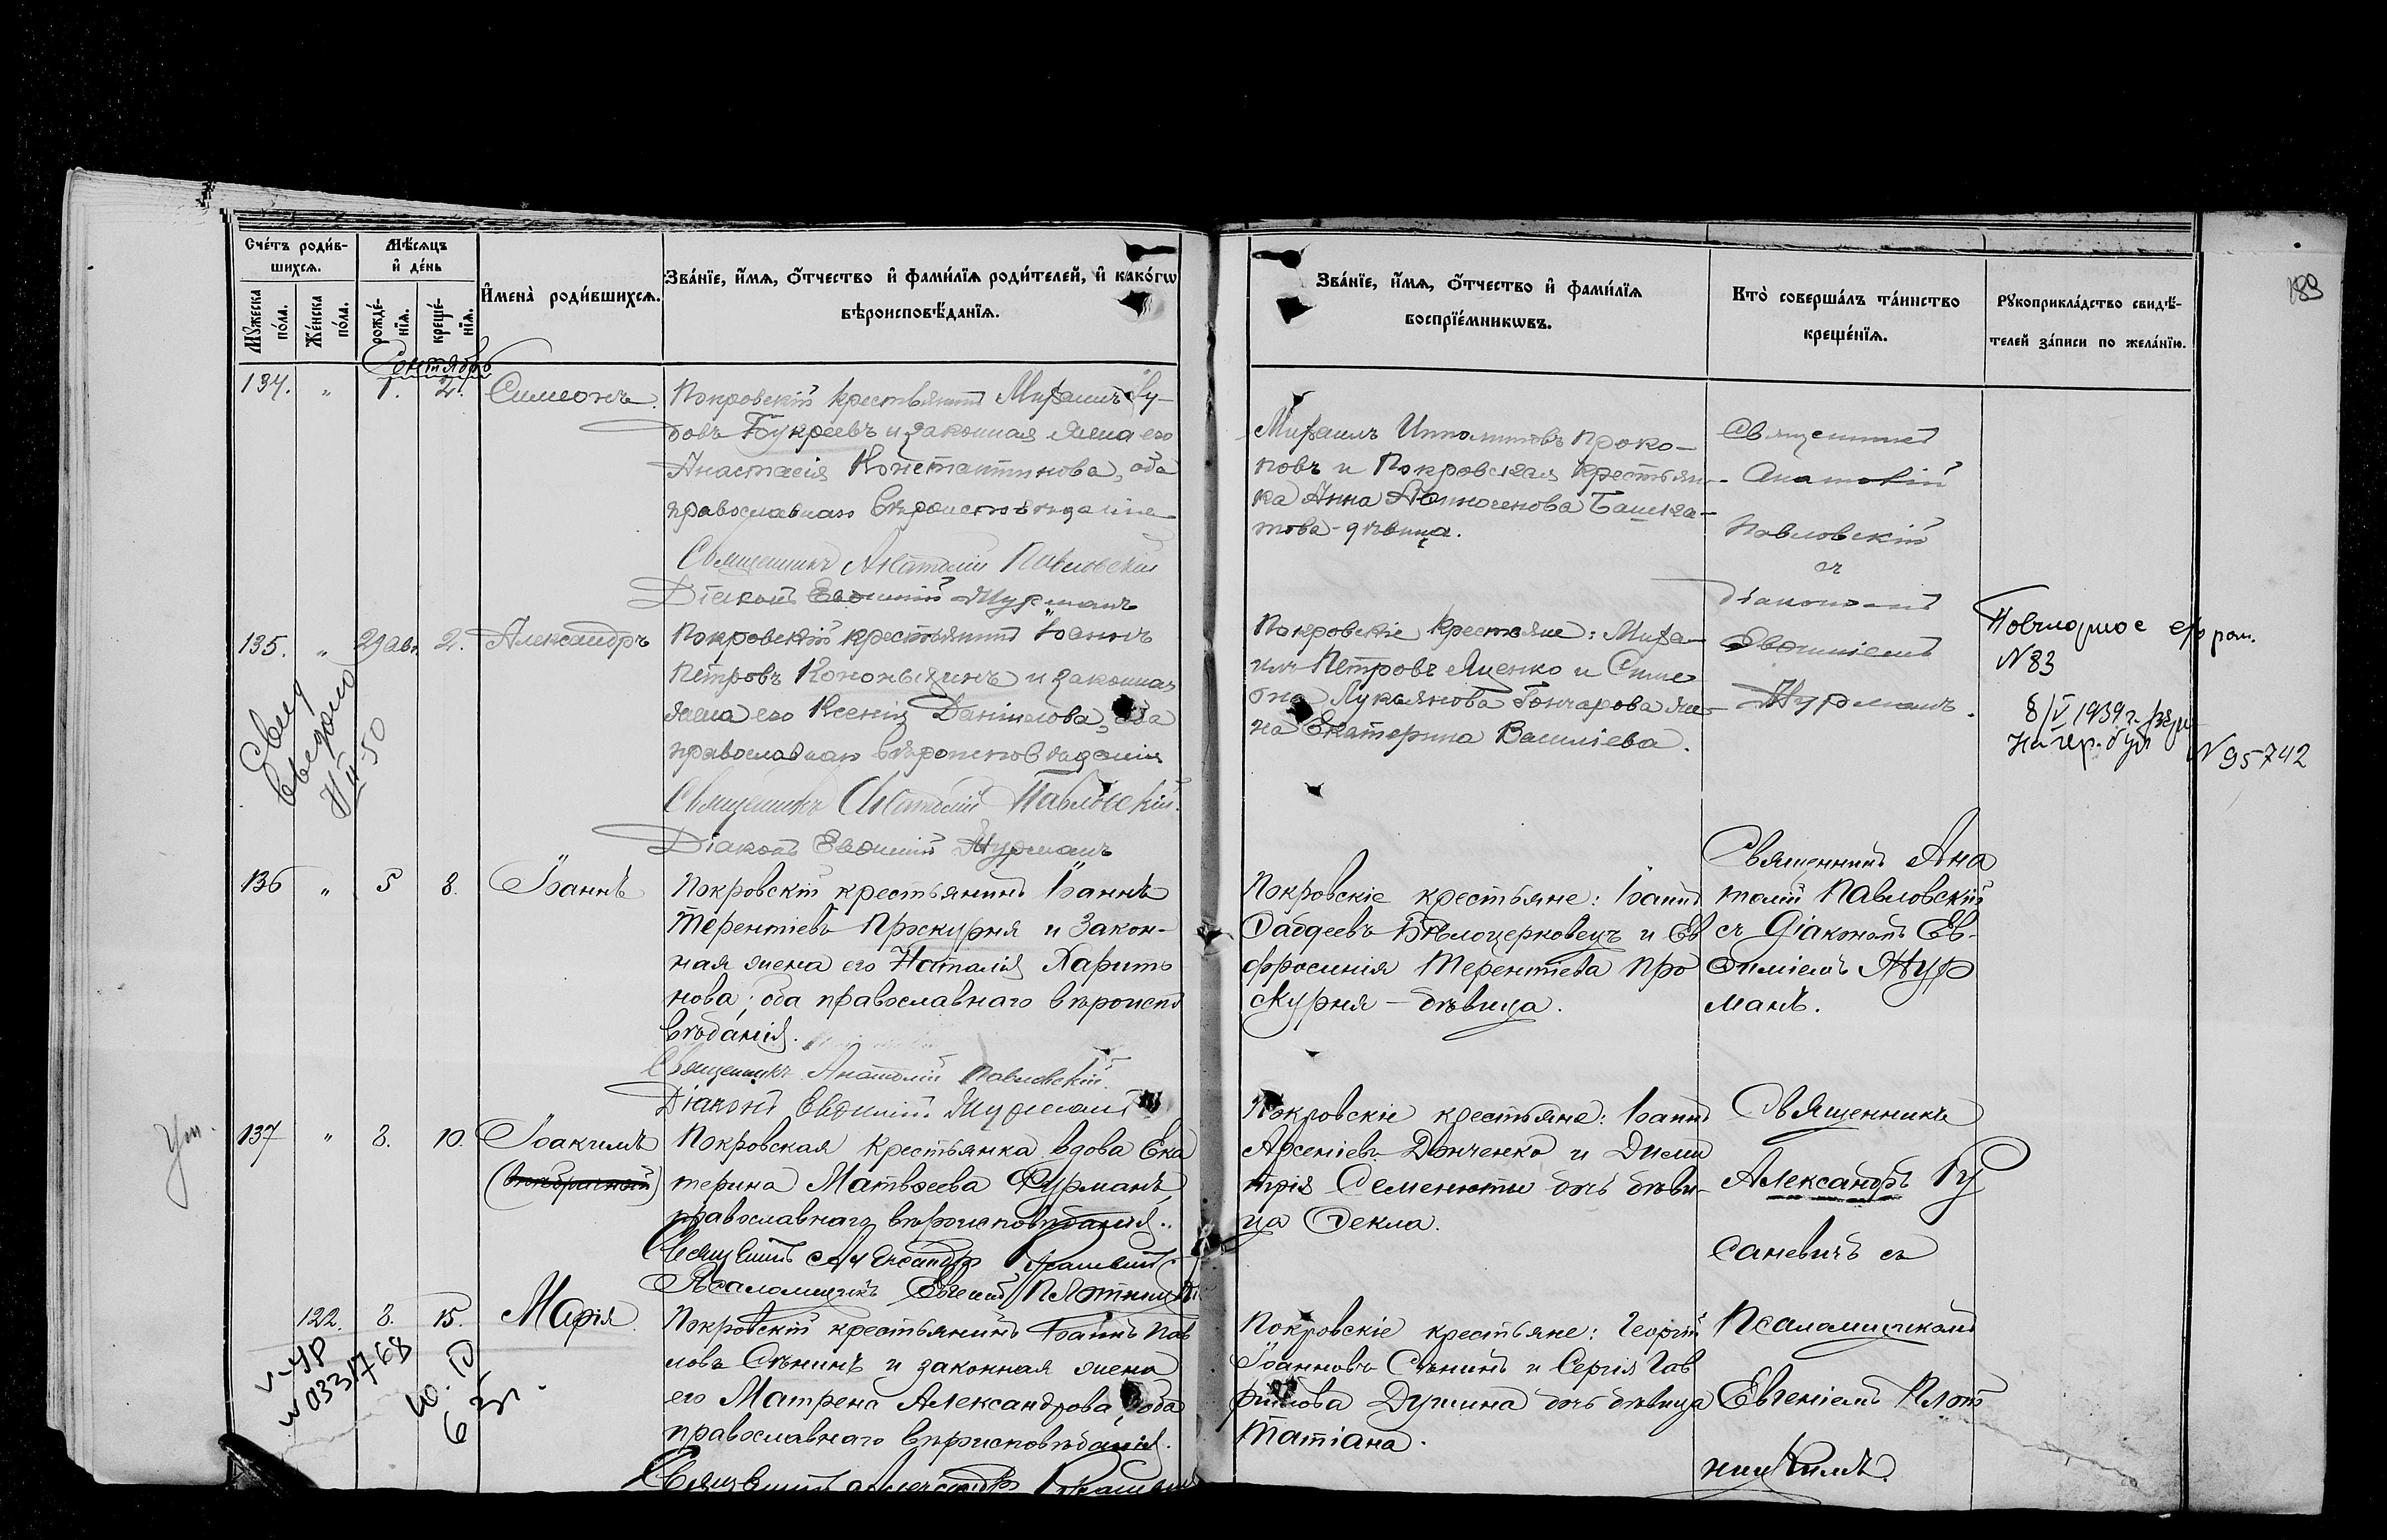 Сче́тъ роди́в-
шихсѧ.
Мѣ́сѧцъ
и҆ де́нь
И҆мена̀ роди́вшихсѧ.
Зва́нїе, и҆́мѧ, ѻ҆́тчество и҆ фами́лїѧ роди́телей, и҆ како́гѡ
вѣроисповѣ́данїѧ.
Мꙋ́жеска
по́ла.
Же́нска
по́ла.
рожде́-
нїѧ.
креще́-
нїѧ.
Сентябрь
134. " 1. 2. Симеонъ.
Покровскій крестьянинъ Михаилъ
Букреевъ и законная жена его
Анастасія Константинова, оба
православнаго вѣроисповѣданія
Священникъ Анатолій Павловскій
Діаконъ Евѳимій Журманъ
135. " 29 авг. 2. Александръ
Покровскій крестьянинъ Іоаннъ
Петровъ и законная
жена его Ксенія Даніилова, оба
православнаго вѣроисповѣданія
Священникъ Анатолій Павловскій.
Діаконъ Евѳимій Журманъ
50
136 " 5 8. Іоаннъ
Покровскій крестьянинъ Іоаннъ
Терентіевъ Проскурня и закон-
ная жена его Наталія Харито
нова; оба православнаго вѣроиспо
вѣданія.
Священникъ Анатолій Павловскій.
Діаконъ Евѳимій Журманъ
137 " 8. 10. Іоакимъ
(внѣбрачный)
Покровская крестьянка вдова Ека
терина Матвѣева Фурманъ,
православнаго вѣроисповѣданія.
Священникъ Александръ
Псаломщикъ Евгеній Плотницкій
122. 8. 15. Марія
Покровскій крестьянинъ Іоаннъ Пав
ловъ Сѣнинъ и законная жена
его Матрена Александрова, оба
православнаго вѣроисповѣданія.
Священникъ Александръ
Зва́нїе, и҆́мѧ, ѻ҆́тчество и҆ фами́лїѧ
воспрїе́мникѡвъ.
Кто̀ соверша́лъ та́инство
креще́нїѧ.
Рꙋкоприкла́дство свидѣ́-
телей за́писи по жела́нїю.
188
Михаилъ Ипполитовъ Проко-
повъ и Покровская крестьян-
ка Анна Башка-
това - дѣвица.
Священникъ
Анатолій
Павловскій
съ
Діакономъ
Евѳиміемъ
Журманъ.
Покровскіе крестьяне: Миха-
илъ Петровъ Яценко и Симе
она Лукьянова Гончарова же-
на Екатерина Василіева.
Повторное
N 83
8/V 1939 г.
N 95742
Покровскіе крестьяне: Іоаннъ
Ѳаддеевъ Бѣлоцерковецъ и Ев
фросинія Терентіева Про
скурня - дѣвица.
Священникъ Ана
толій Павловскій
съ Діакономъ Ев-
ѳиміемъ Жур
манъ.
Покровскіе крестьяне: Іоаннъ
Арсеніевъ Донченко и Дими
трія Семенюты дочь дѣви-
ца Ѳекла.
Священникъ
Александръ Ру
саневичъ съ
Покровскіе крестьяне: Георгій
Іоанновъ Сѣнинъ и Сергія Гав
риилова Душина дочь дѣвица
Татіана.
Псаломщикомъ
Евгеніемъ Плот
ницкимъ.